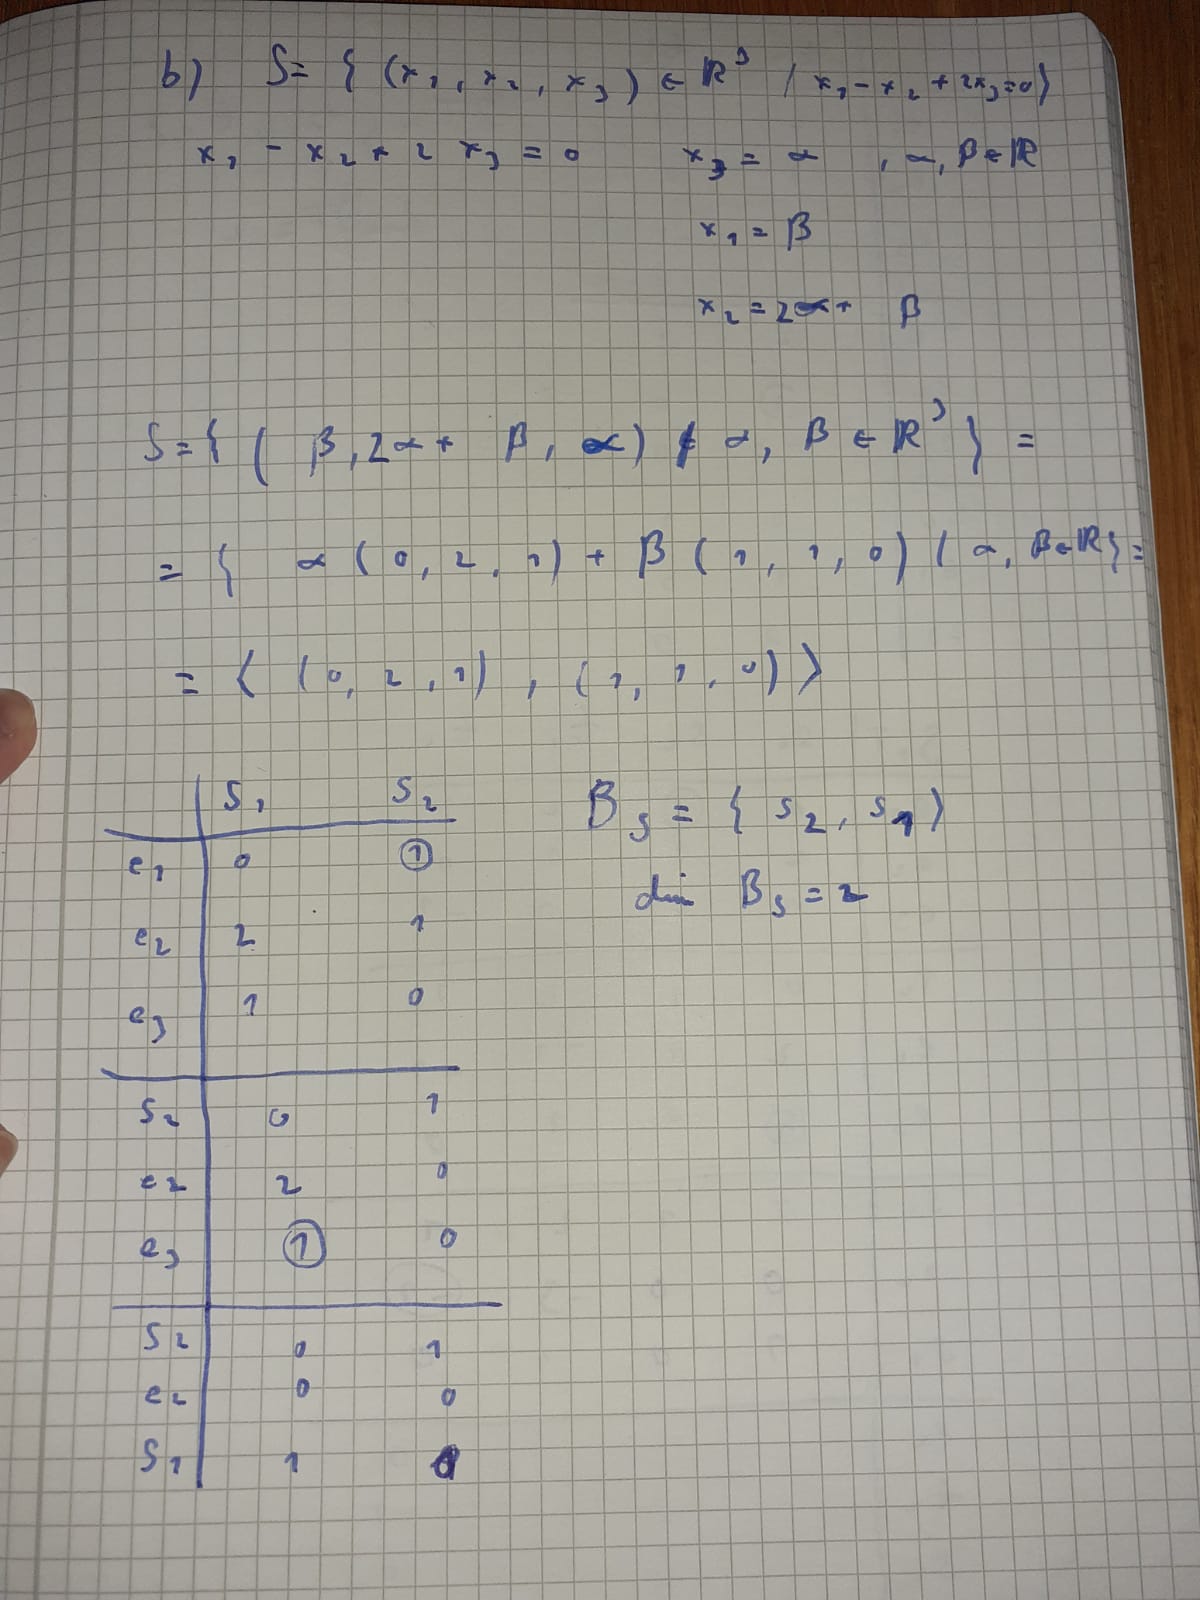 b) S= { (x₁, x₂, x₃) ∈ ℝ³ / x₁ - x₂ + 2x₃=0}
x₁ - x₂ + 2 x₃ = 0 x₃ = α , α, β ∈ ℝ
x₁ = β
x₂ = 2α + β
S = { ( β, 2α + β, α) / α, β ∈ ℝ³ } =
= { α ( 0, 2, 1) + β ( 1, 1, 0) / α, β ∈ ℝ } =
= ⟨ (0, 2, 1) , (1, 1, 0) ⟩
S₁ S₂
e₁ 0 ①
e₂ 2 1
e₃ 1 0
S₂ 0 1
e₂ 2 0
e₃ ① 0
S₂ 0 1
e₂ 0 0
S₁ 1
B_S = { s₂, s₁ }
dim B_S = 2